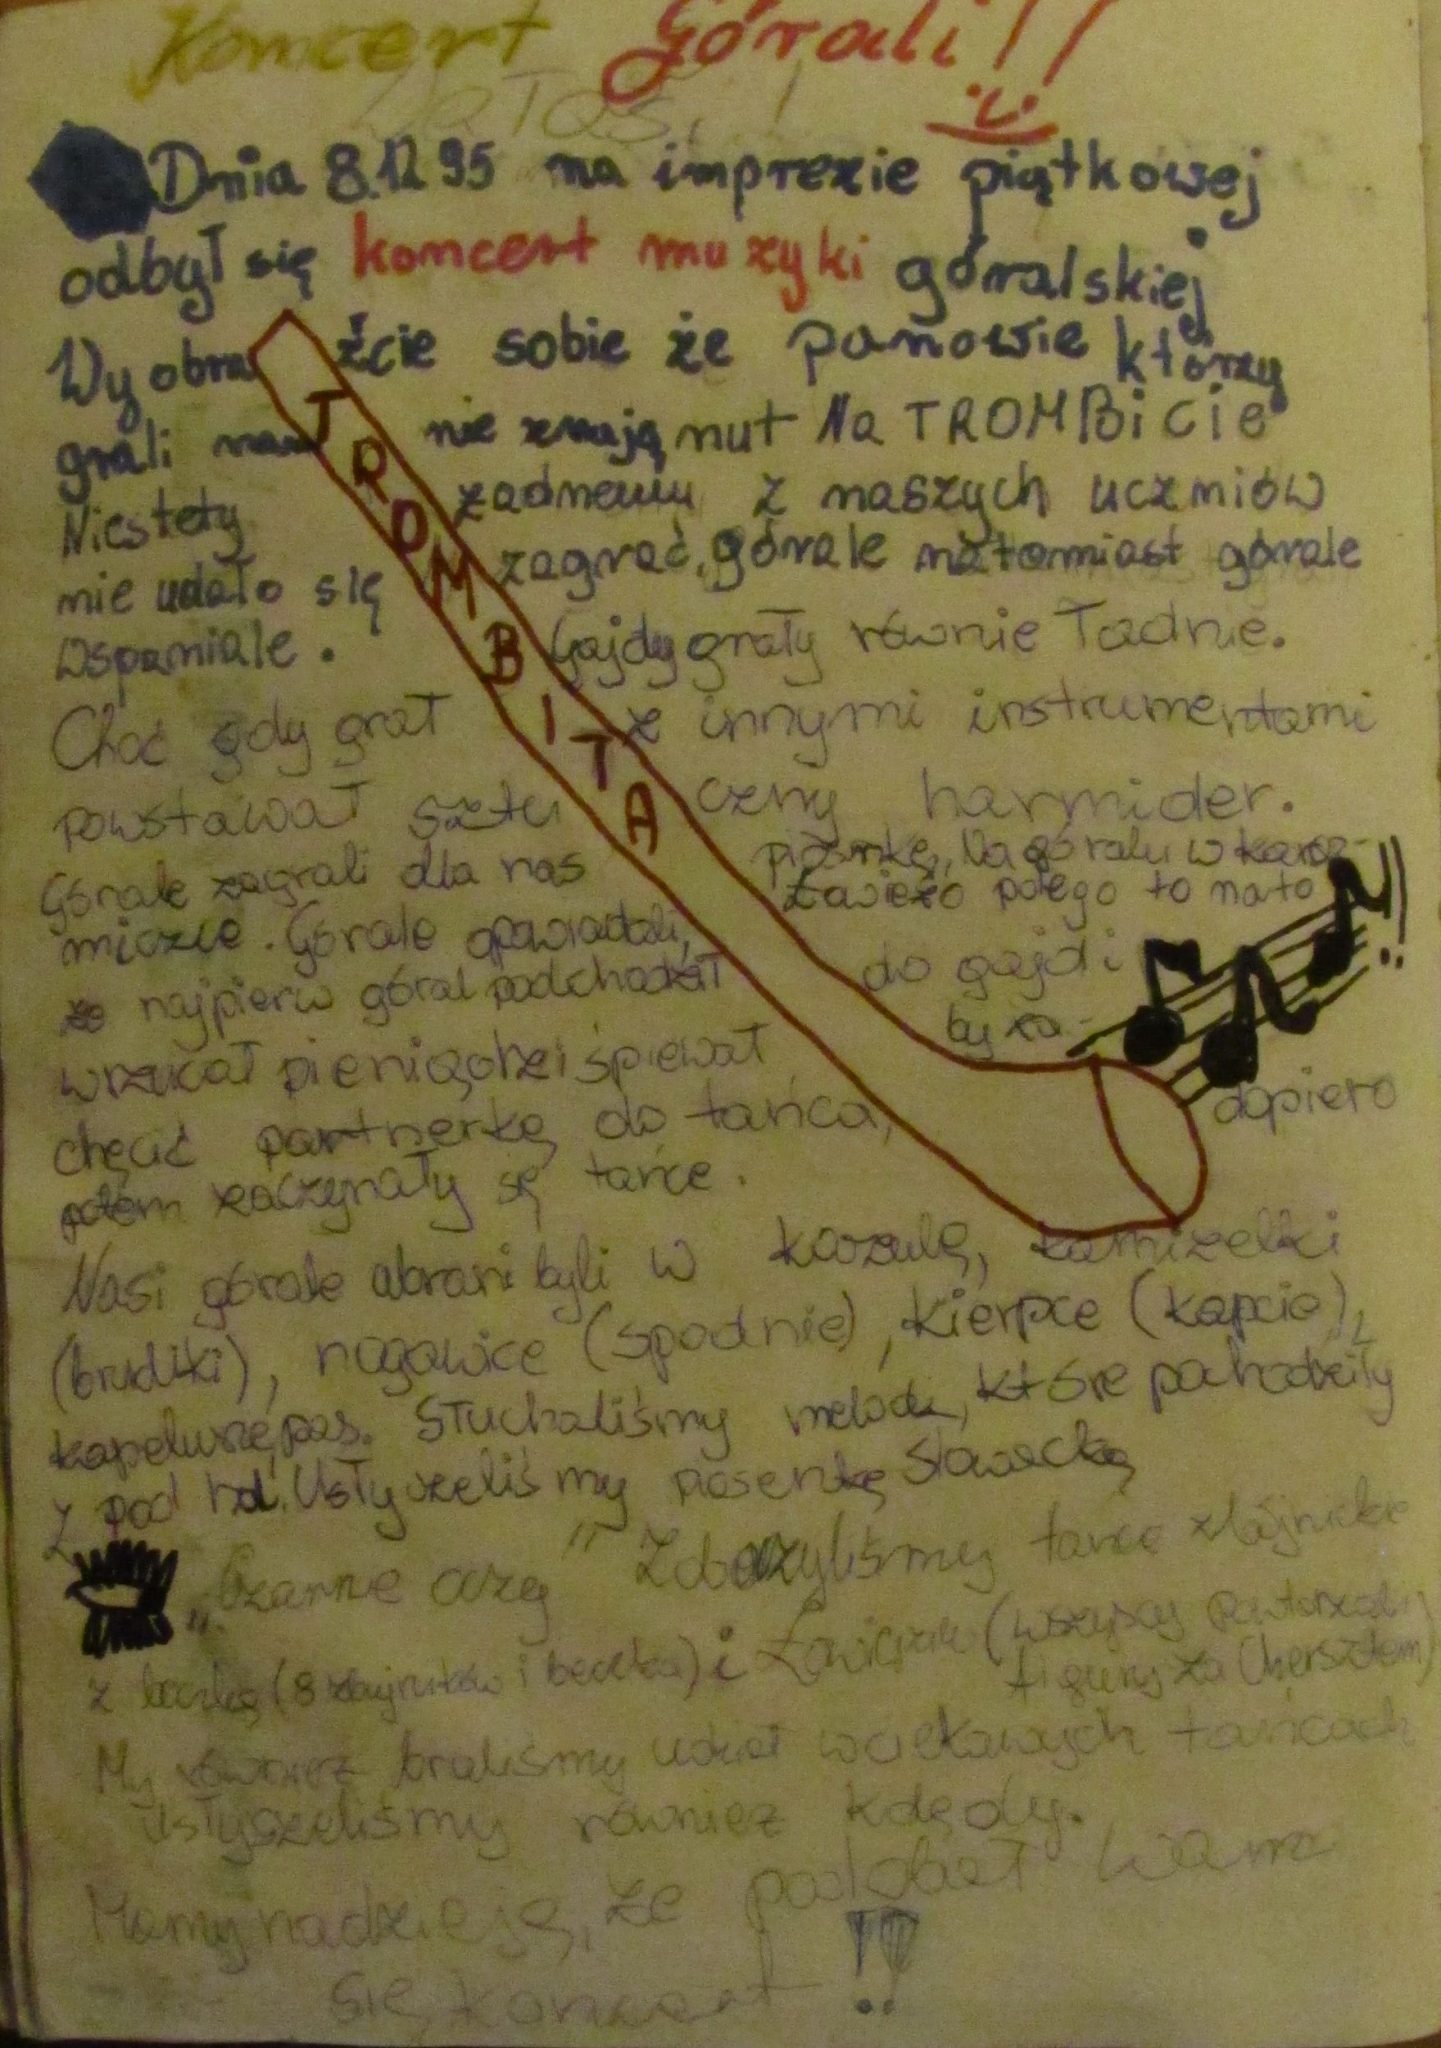 Koncert Górali!!
Dnia 8.12 95 na imprezie piątkowej
odbył się koncert muzyki góralskiej
Wyobraźcie sobie że panowie którzy
grali nam nie znają nut Na TROMBiCie
Niestety żadnemu z naszych uczniów
nie udało się zagrać, górale natomiast górale
wspaniale. Gajdy grały równie ładnie.
Choć gdy grał z innymi instrumentami
powstawał sztuczny harmider.
Górale zagrali dla nas piosnkę, Na góralu w karcz-
miczce. Górale opowiadali, polego to na to
że najpierw góral podchodził do gajdi
wrzucał pieniądze i śpiewał by za-
chęcić partnerkę do tańca, dopiero
potem zaczynały się tańce.
Nasi górale ubrani byli w koszulę, kamizelki
(brudliki), nogawice (spodnie), kierpce (kapcie),
kapelusze, pas. Słuchaliśmy melodi, które pochodziły
z pod hal. Usłyszeliśmy piosenkę słowacką
„Czarne oczy” Zobaczyliśmy tańce zbójnickie
z beczką (8 zbójników i beczka) i (wszyscy powtarzali
figury za Chersztem)
My również braliśmy udział w ciekawych tańcach
Usłyszeliśmy również kolędy.
Mamy nadzieję, że podobał wam
się koncert !!
TROMBITA